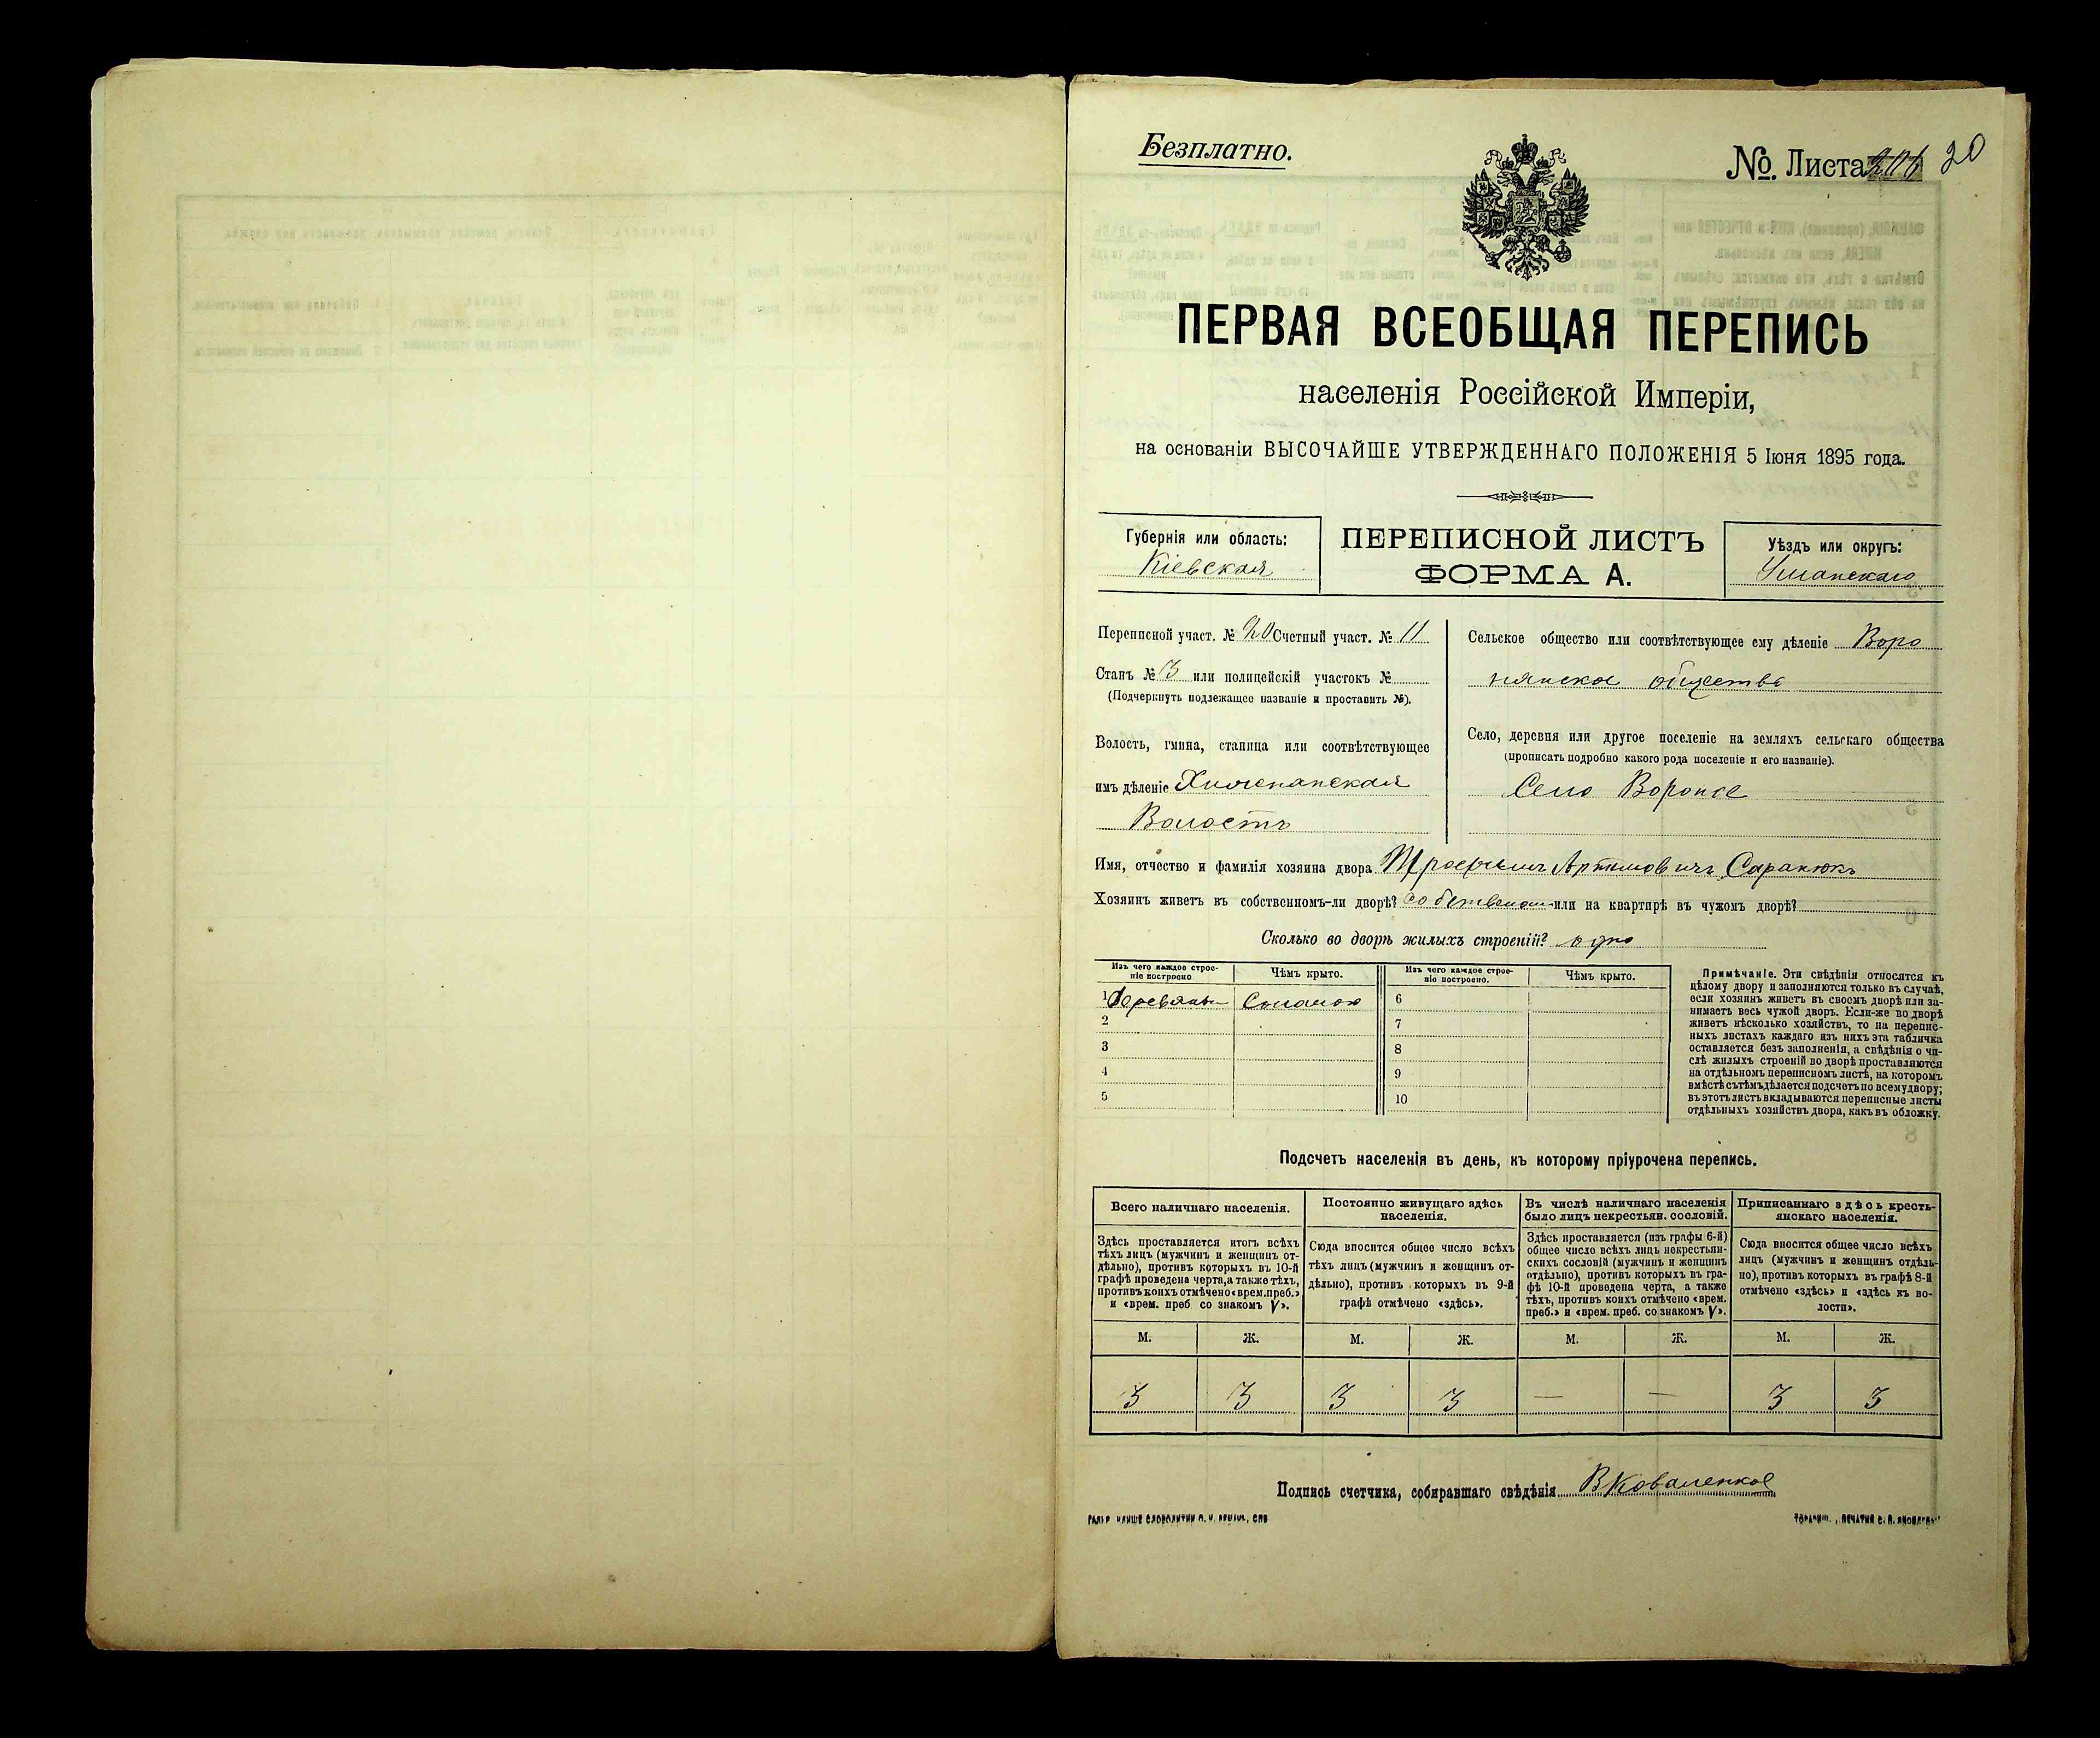 Безплатно.
№. Листа 20
ПЕРВАЯ ВСЕОБЩАЯ ПЕРЕПИСЬ
населенія Россійской Имперіи,
на основаніи ВЫСОЧАЙШЕ УТВЕРЖДЕННАГО ПОЛОЖЕНІЯ 5 Іюня 1895 года.
Губернія или область:
Кіевская
ПЕРЕПИСНОЙ ЛИСТЪ
ФОРМА А.
Уѣздъ или округъ:
Уманскаго
Переписной участ. № 20 Счетный участ. № 11
Станъ № 3 или полицейскій участокъ №
(Подчеркнуть подлежащее названіе и проставить №).
Волость, гмина, станица или соотвѣтствующее
имъ дѣленіе
Волость
Сельское общество или соотвѣтствующее ему дѣленіе Воро
нянское общество
Село, деревня или другое поселеніе на земляхъ сельскаго общества
(прописать подробно какого рода поселеніе и его названіе).
Село Вороное
Имя, отчество и фамилія хозяина двора Саранюкъ
Хозяинъ живетъ въ собственномъ-ли дворѣ? или на квартирѣ въ чужомъ дворѣ?
Сколько во дворѣ жилыхъ строеній? одно
Изъ чего каждое строе-
ніе построено
Чѣмъ крыто.
Изъ чего каждое строе-
ніе построено.
Чѣмъ крыто.
1 Соломою
2
3
4
5
6
7
8
9
10
Примѣчаніе. Эти свѣдѣнія относятся къ
цѣлому двору и заполняются только въ случаѣ,
если хозяинъ живетъ въ своемъ дворѣ или за-
нимаетъ весь чужой дворъ. Если-же во дворѣ
живетъ нѣсколько хозяйствъ, то на перепис-
ныхъ листахъ каждаго изъ нихъ эта табличка
оставляется безъ заполненія, а свѣдѣнія о чи-
слѣ жилыхъ строеній во дворѣ проставляются
на отдѣльномъ переписномъ листѣ, на которомъ
вмѣстѣ съ тѣмъ дѣлается подсчетъ по всему двору;
въ этотъ листъ вкладываются переписные листы
отдѣльныхъ хозяйствъ двора, какъ въ обложку.
Подсчетъ населенія въ день, къ которому пріурочена перепись.
Всего наличнаго населенія.
Постоянно живущаго здѣсь
населенія.
Въ числѣ наличнаго населенія
было лицъ некрестьян. сословій.
Приписаннаго здѣсь кресть-
янскаго населенія.
Здѣсь проставляется итогъ всѣхъ
тѣхъ лицъ (мужчинъ и женщинъ от-
дѣльно), противъ которыхъ въ 10-й
графѣ проведена черта, а также тѣхъ,
противъ коихъ отмѣчено «врем. преб.»
и «врем. преб. со знакомъ V».
Сюда вносится общее число всѣхъ
тѣхъ лицъ (мужчинъ и женщинъ от-
дѣльно), противъ которыхъ въ 9-й
графѣ отмѣчено «здѣсь».
Здѣсь проставляется (изъ графы 6-й)
общее число всѣхъ лицъ некрестьян-
скихъ сословій (мужчинъ и женщинъ
отдѣльно), противъ которыхъ въ гра-
фѣ 10-й проведена черта, а также
тѣхъ, противъ коихъ отмѣчено «врем.
преб.» и «врем. преб. со знакомъ V».
Сюда вносится общее число всѣхъ
лицъ (мужчинъ и женщинъ отдѣль-
но), противъ которыхъ въ графѣ 8-й
отмѣчено «здѣсь» и «здѣсь къ во-
лости».
М. Ж. М. Ж. М. Ж. М. Ж.
3 3 3 3 — — 3 3
Подпись счетчика, собиравшаго свѣдѣнія ВКоваленко